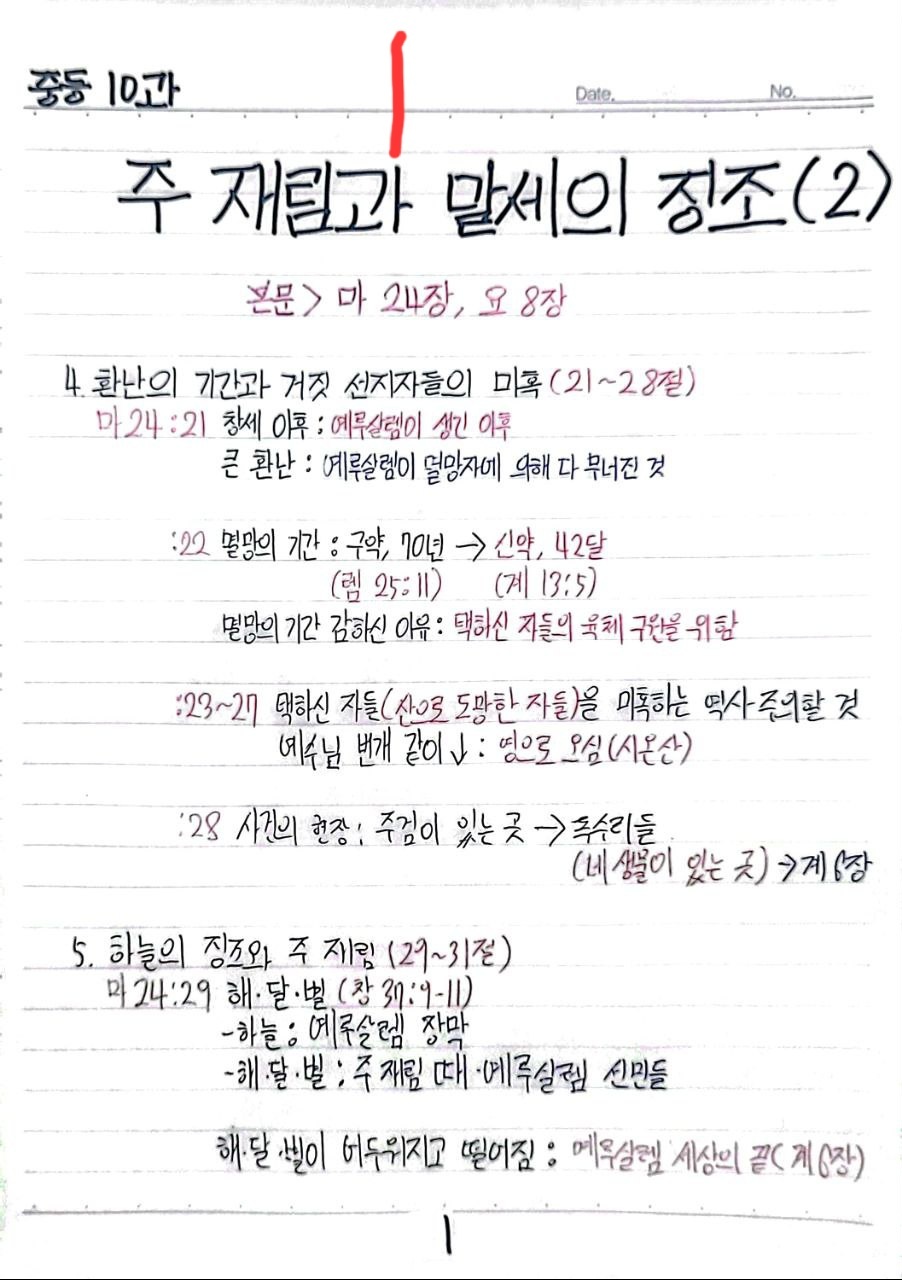 중등 10과
Date.
No.
주 재림과 말세의 징조(2)
본문> 마 24장, 요 8장
4. 환난의 기간과 거짓 선지자들의 미혹(21~28절)
마24:21 창세 이후 : 예루살렘이 생긴 이후
큰 환난 : 예루살렘이 멸망자에 의해 다 무너진 것
:22 멸망의 기간 : 구약, 70년 → 신약, 42달
(렘 25:11) (계 13:5)
멸망의 기간 감하신 이유: 택하신 자들의 육체 구원을 위함
:23~27 택하신 자들(산으로 도망한 자들)을 미혹하는 역사 주의할 것
예수님 번개 같이↓ : 영으로 오심(시온산)
:28 사건의 현장 : 주검이 있는 곳 → 독수리들
(네 생물이 있는 곳) → 계 6장
5. 하늘의 징조와 주 재림 (29~31절)
마24:29 해·달·별 (창 37:9-11)
-하늘 : 예루살렘 장막
-해·달·별 : 주 재림 때 예루살렘 선민들
해·달·별이 어두워지고 떨어짐 : 예루살렘 세상의 끝(계6장)
1